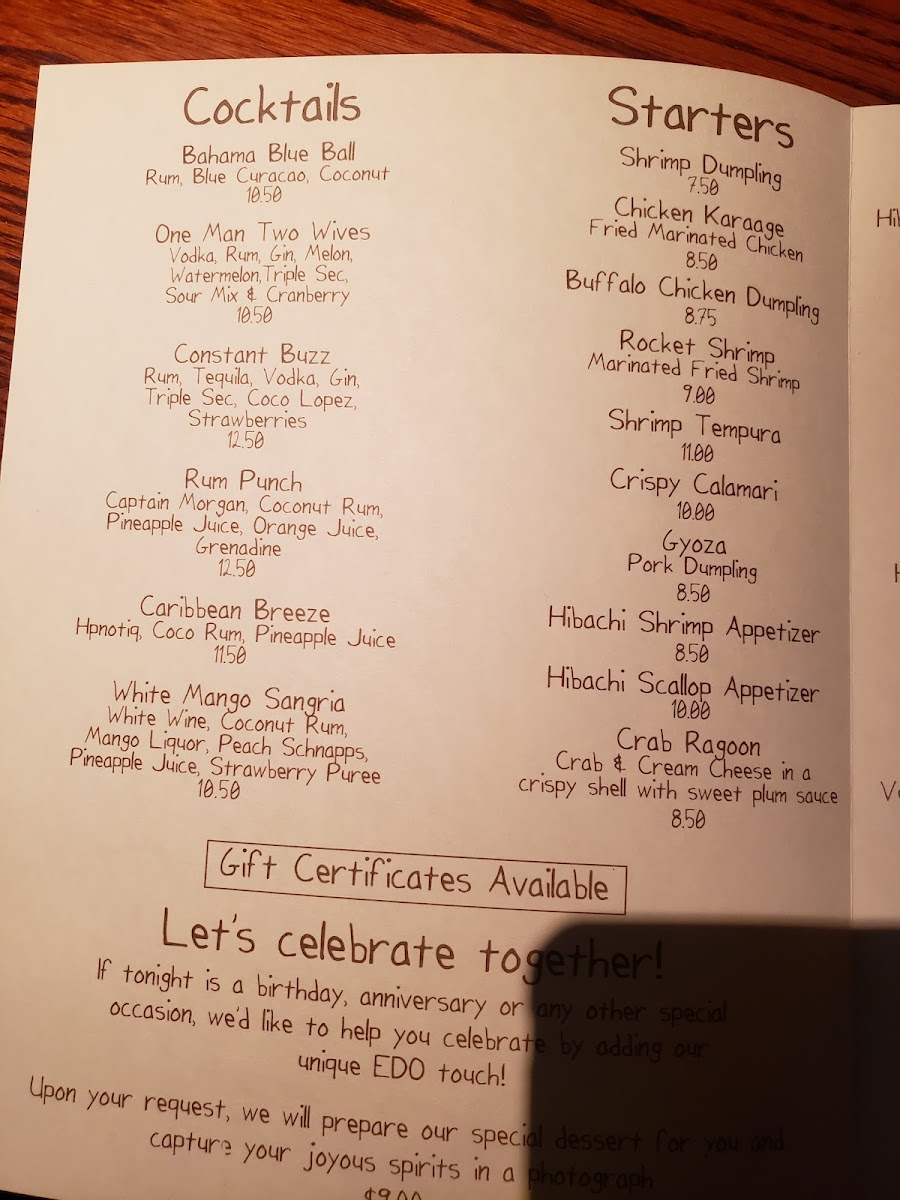 Cocktails
Bahama Blue Ball
Rum, Blue Curacao, Coconut
10.50
One Man Two Wives
Vodka, Rum, Gin, Melon,
Watermelon, Triple Sec,
Sour Mix & Cranberry
10.50
Constant Buzz
Rum, Tequila, Vodka, Gin,
Triple Sec, Coco Lopez,
Strawberries
12.50
Rum Punch
Captain Morgan, Coconut Rum,
Pineapple Juice, Orange Juice,
Grenadine
12.50
Caribbean Breeze
Hpnotiq, Coco Rum, Pineapple Juice
11.50
White Mango Sangria
White Wine, Coconut Rum,
Mango Liquor, Peach Schnapps,
Pineapple Juice, Strawberry Puree
10.50
Starters
Shrimp Dumpling
7.50
Chicken Karaage
Fried Marinated Chicken
8.50
Buffalo Chicken Dumpling
8.75
Rocket Shrimp
Marinated Fried Shrimp
9.00
Shrimp Tempura
11.00
Crispy Calamari
10.00
Gyoza
Pork Dumpling
8.50
Hibachi Shrimp Appetizer
8.50
Hibachi Scallop Appetizer
10.00
Crab Ragoon
Crab & Cream Cheese in a
crispy shell with sweet plum sauce
8.50
Gift Certificates Available
Let's celebrate together!
If tonight is a birthday, anniversary or any other special
occasion, we'd like to help you celebrate by adding our
unique EDO touch!
Upon your request, we will prepare our special dessert for you and
capture your joyous spirits in a photograph
$9.00